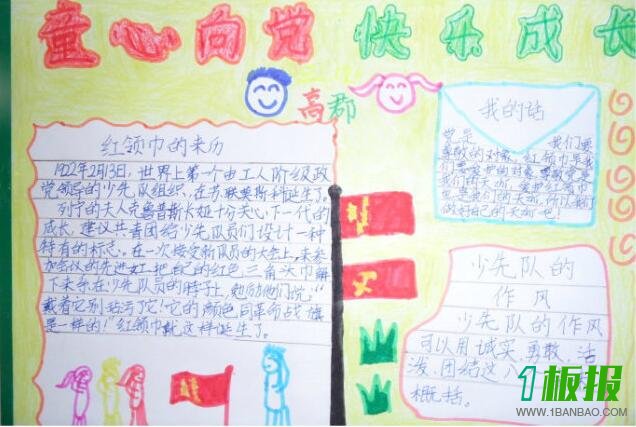 童心向党 快乐成长
高郡
红领巾的来历
1922年2月13日,世界上第一个由工人阶级政
党领导的少先队组织,在苏联莫斯科诞生了。
列宁的夫人克鲁普斯卡娅十分关心下一代的
成长,建议共青团给少先队员们设计一种
特有的标志。在一次接受新队员的大会上,来参
加会议的先进女工把自己的红色三角头巾解
下来系在少先队员的脖子上,勉励他们说:“
戴着它别玷污了它!它的颜色同革命战旗
是一样的!红领巾就这样诞生了。
我的话
党是 我们要
尊敬的对象,红领巾是我
们要爱护的对象,尊敬党是
我们的天职,爱护红领巾
也是我们的天职,所以我们
做好自己的天职吧!
少先队的
作风
少先队的作风
可以用诚实、勇敢、活
泼、团结这八
概括。
1板报
WWW.1BANBAO.COM